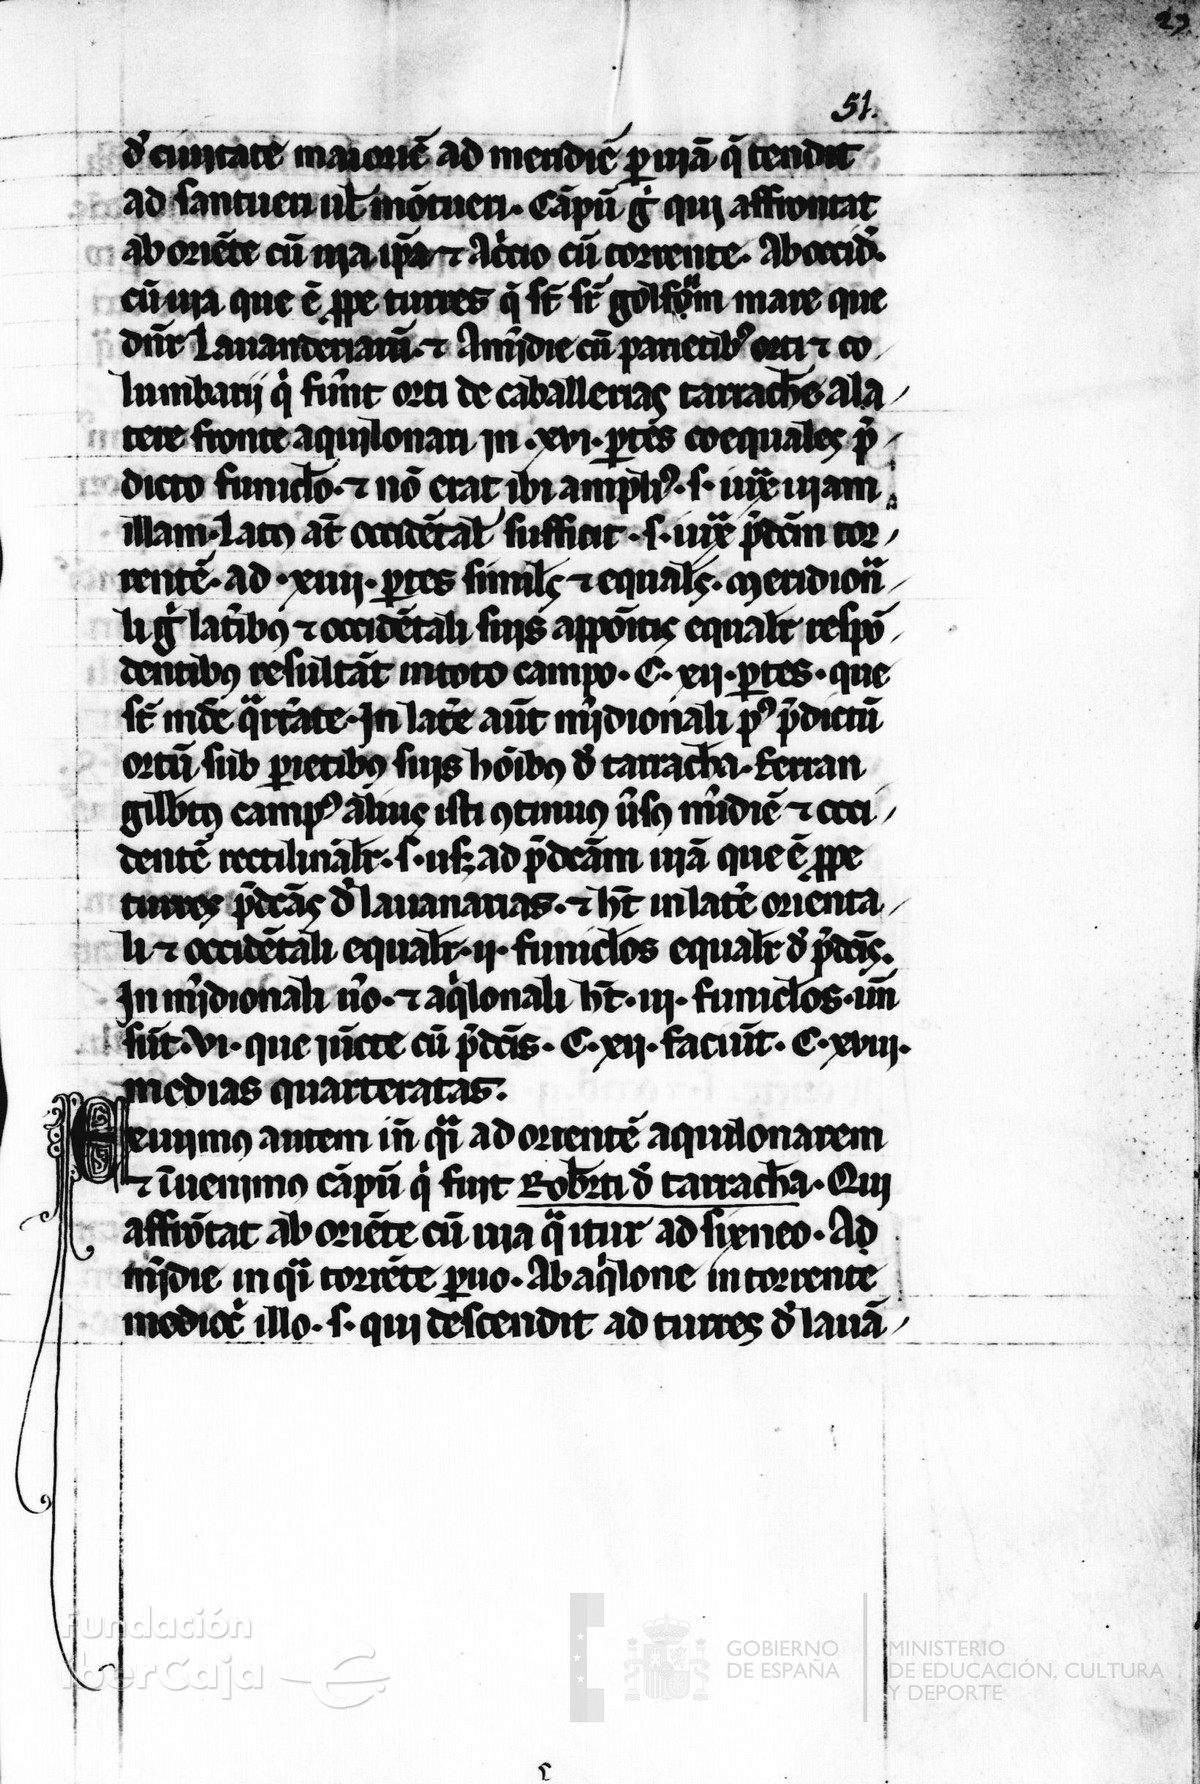 27
51.
d̕ ciuitatē maioriē ad meridiē ꝑ uiā q̄ tendit
ad santueri ul̕ mōtueri. Cāpū g̕ qui affrontat
ab oriēte cū uia ip̄a ⁊ Acc̕io cū torrente. Ab occid̕.
cū uia que ē ꝓpe turres q̄ st̄ mare que
dn̄r Lauanderiarū. ⁊ A mīdie cū parietib᾽ orti ⁊ co
lumbarij q̕ fuīnt orti de caballerias tarrach̄s a la
tere fronte aquilonari in .xvi. ꝑtes coequales p̄
dicto funicl̄o. ⁊ nō erat ibi ampli᾽. s. iuxͣ uiam
illam. Latꝰ at̄ occidētal̕ sufficit .s. iuxͣ p̄dc̄m tor
rentē. ad .xiiii. ꝑtes simil̄s ⁊ equal̄s. Meridionͣ
li g̕ lat̕ibꝰ ⁊ occidētali suis appōitis equalr̕ respō
dentibꝰ resultāt in toto campo. C. xii. ꝑtes. que
st̄ inde qͣrt̕ate. In lat̕e aūt mīdionali p᾽ p̄dictū
ortū sub ꝑietibꝰ suis hōibꝰ d̕ tarracha. ferran
gilb̄tꝰ camp᾽ alius isti ꝯtinuꝰ ūsꝰ mīdiē ⁊ occi
dentē rectilinālr̕. s. usqꝫ ad p̄dcām uiā que ē ꝓpe
turres p̄dcās d̕ lauanarias. ⁊ ht̄ in lat̕e orienta
li ⁊ occidētali equalr̕. ii. funiclos equalr̕ d̕ p̄dcīs.
In mīdionali u̕o. ⁊ aq̕lonali ht̄. iii. funiclos. im̄
sūt. vi. que iūcte cū p̄dcīs. C. xii. faciūt. C. xviii.
medias quarteratas.
Seuimꝰ autem in̄ qͣi ad orientē aquilonarem
⁊ īuenimꝰ cāpū q̕ fuit Rob̄rti d̕ tarracha. Qui
affrōtat ab oriēte cū uia qͣ itur ad sixneo. Ad
mīdie in qͣi torrēte ꝑuo. Ab aq̕lone in torrente
modic̕ illo. s. qui descendit ad turres d̕ lauā
fundación
iberCaja
GOBIERNO
DE ESPAÑA
MINISTERIO
DE EDUCACIÓN, CULTURA
Y DEPORTE